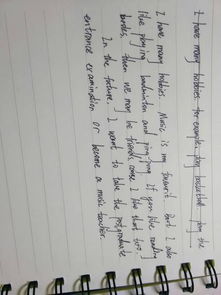 I have many hobbies. for example, play basketball, play the
I have many hobbies. Music is my favourit. But I also
like playing badminton and ping-pong. If you like reading
books, then we may be friends, cause I like that too.
In the fucture, I want to take the postgraduate
entrance examination or become a music teacher.